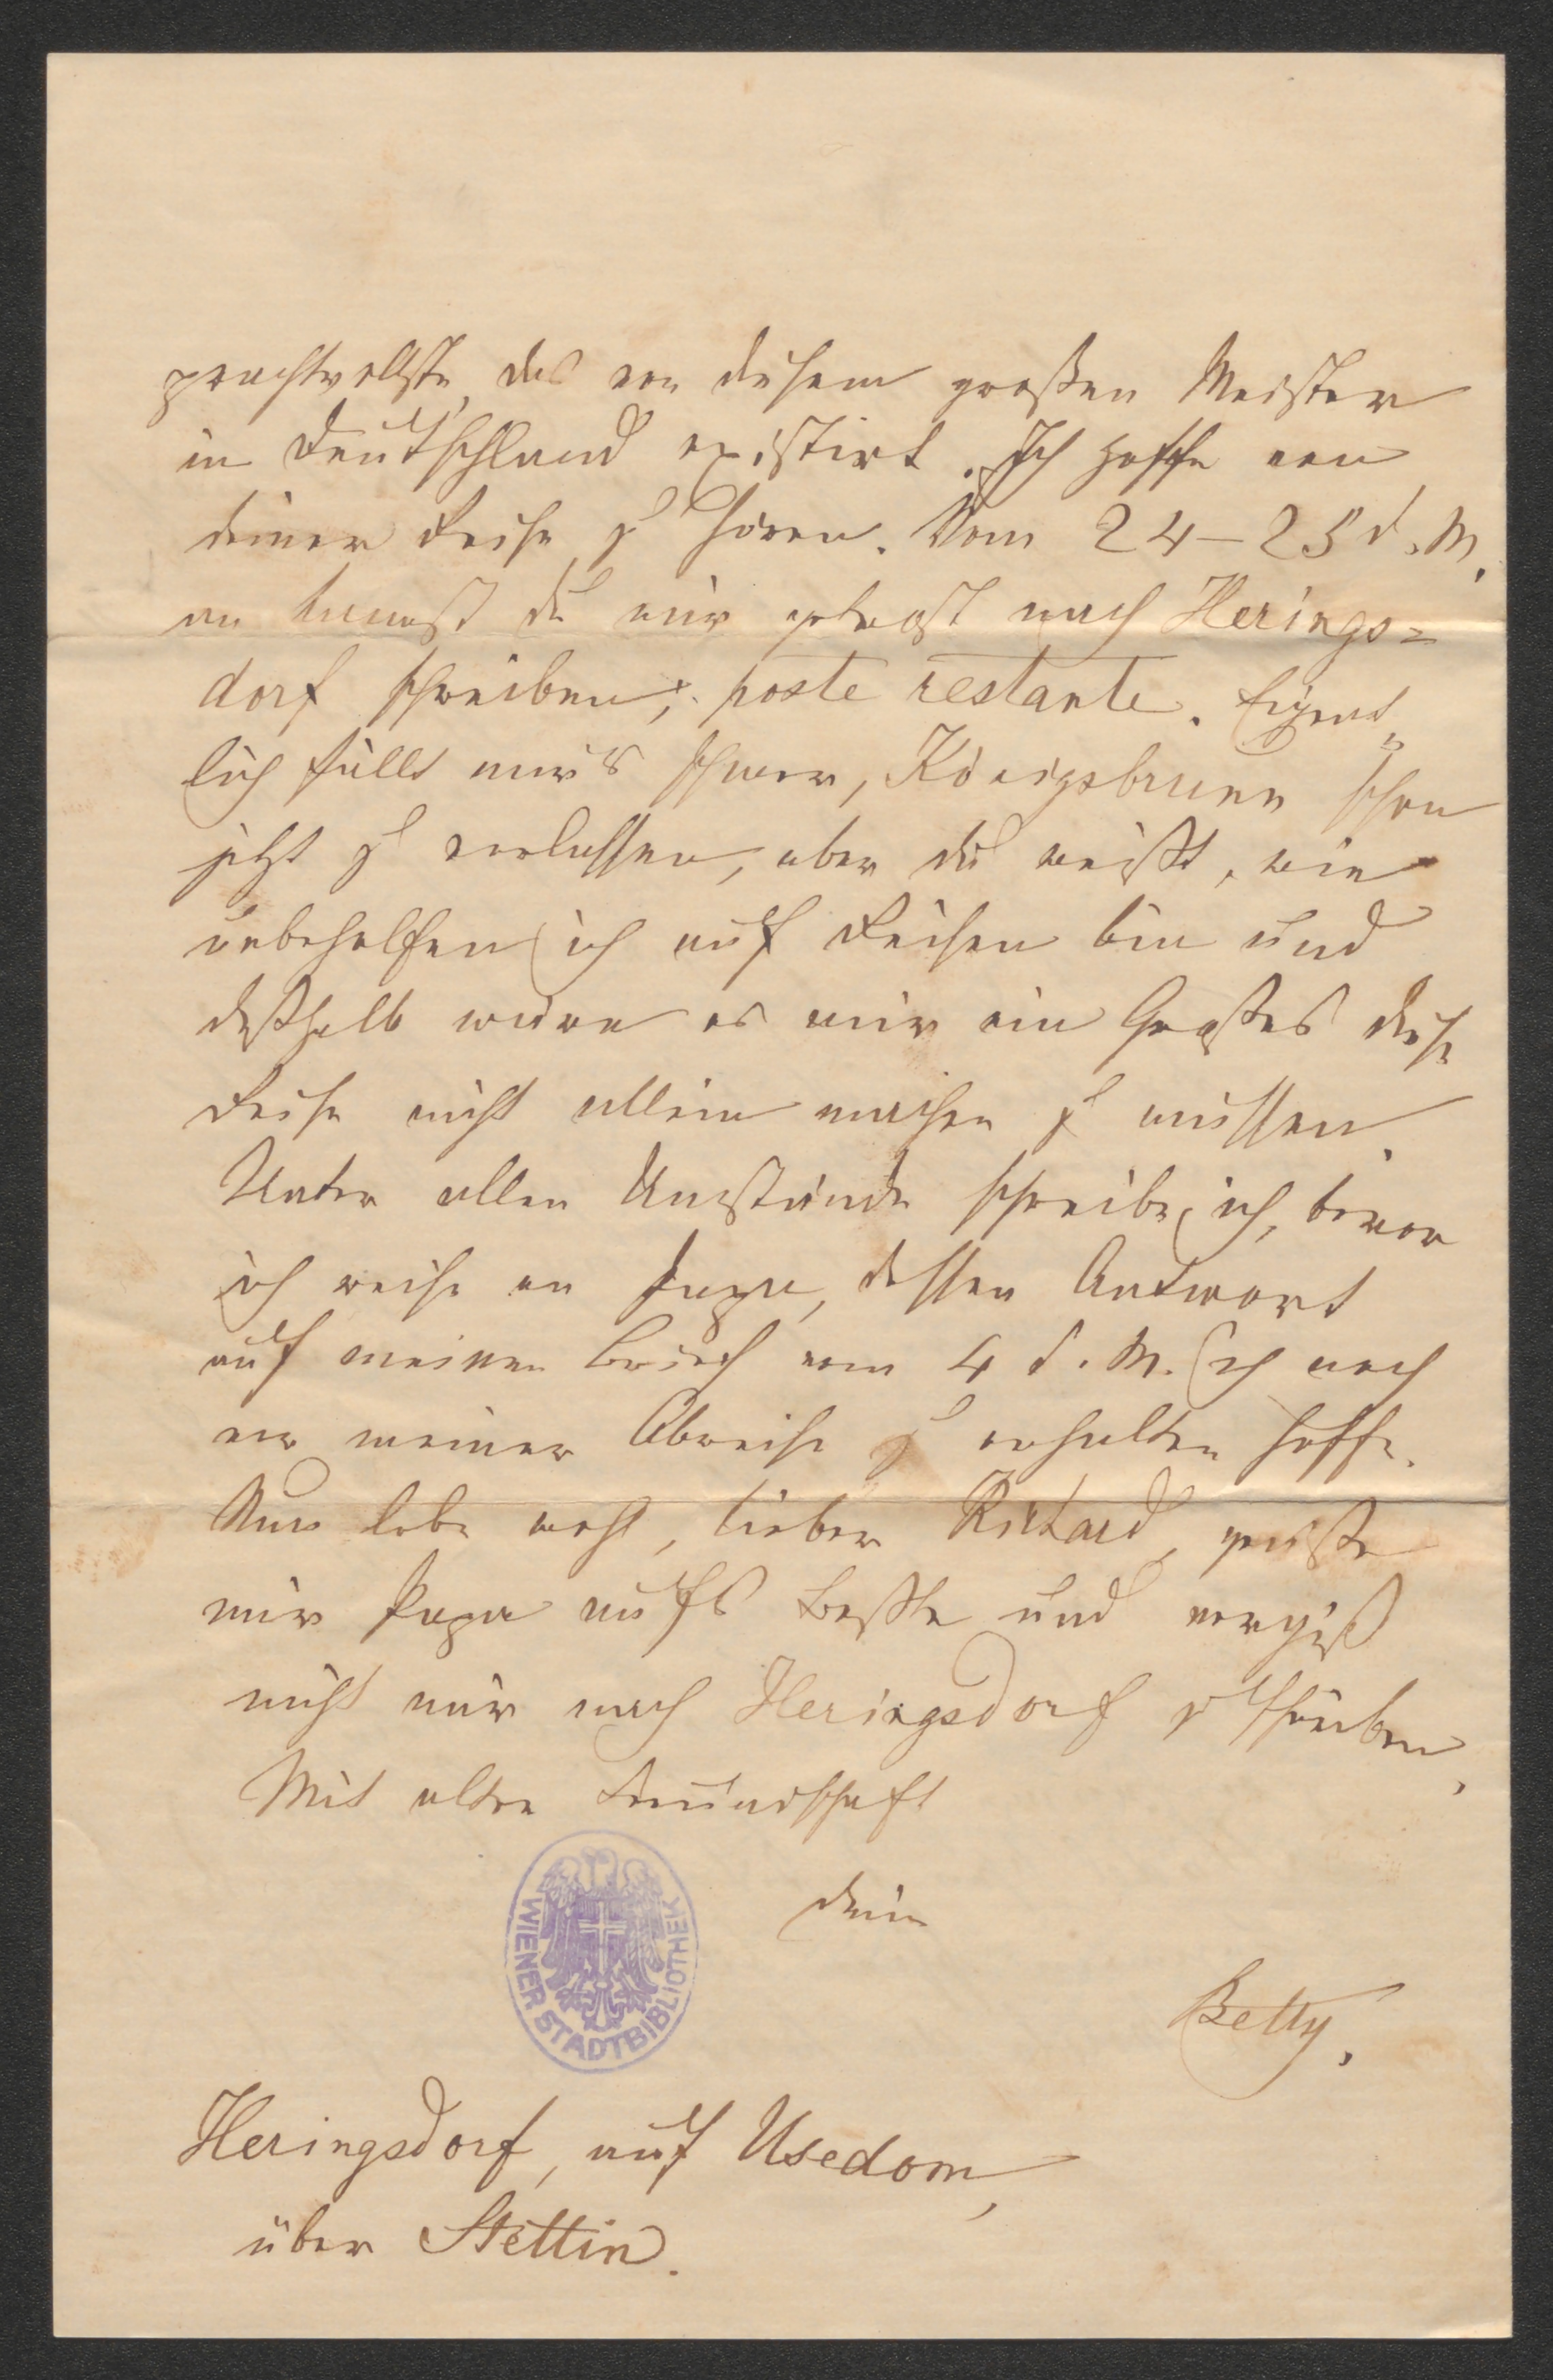 prachtvollste, das von diesem großen Meister
in Deutschland existirt. Ich hoffe von
deiner Reise zu hören. Vom 24–25 d. M.
an kannst du mir getrost nach Herings=
dorf schreiben, poste restante. Eigent„
lich fällt mir's schwer, Königsbrunn schon
jetzt zu verlassen, aber du weißt, wie
unbeholfen ich auf Reisen bin und
deßhalb wäre es mir ein Großes diese
Reise nicht allein machen zu müssen.
Unter allen Umstände schreibe ich, bevor
ich reise an Papa, dessen Antwort
auf meinen Brief vom 4 d. M. ich noch
vor meiner Abreise zu erhalten hoffe.
Nun lebe wohl, lieber Richard, grüße
mir Papa aufs Beste und vergiß
nicht mir nach Heringsdorf zu schreiben.
Mit alter Freundschaft
deine
Betty.
WIENER STADTBIBLIOTHEK
Heringsdorf, auf Usedom,
über Stettin.